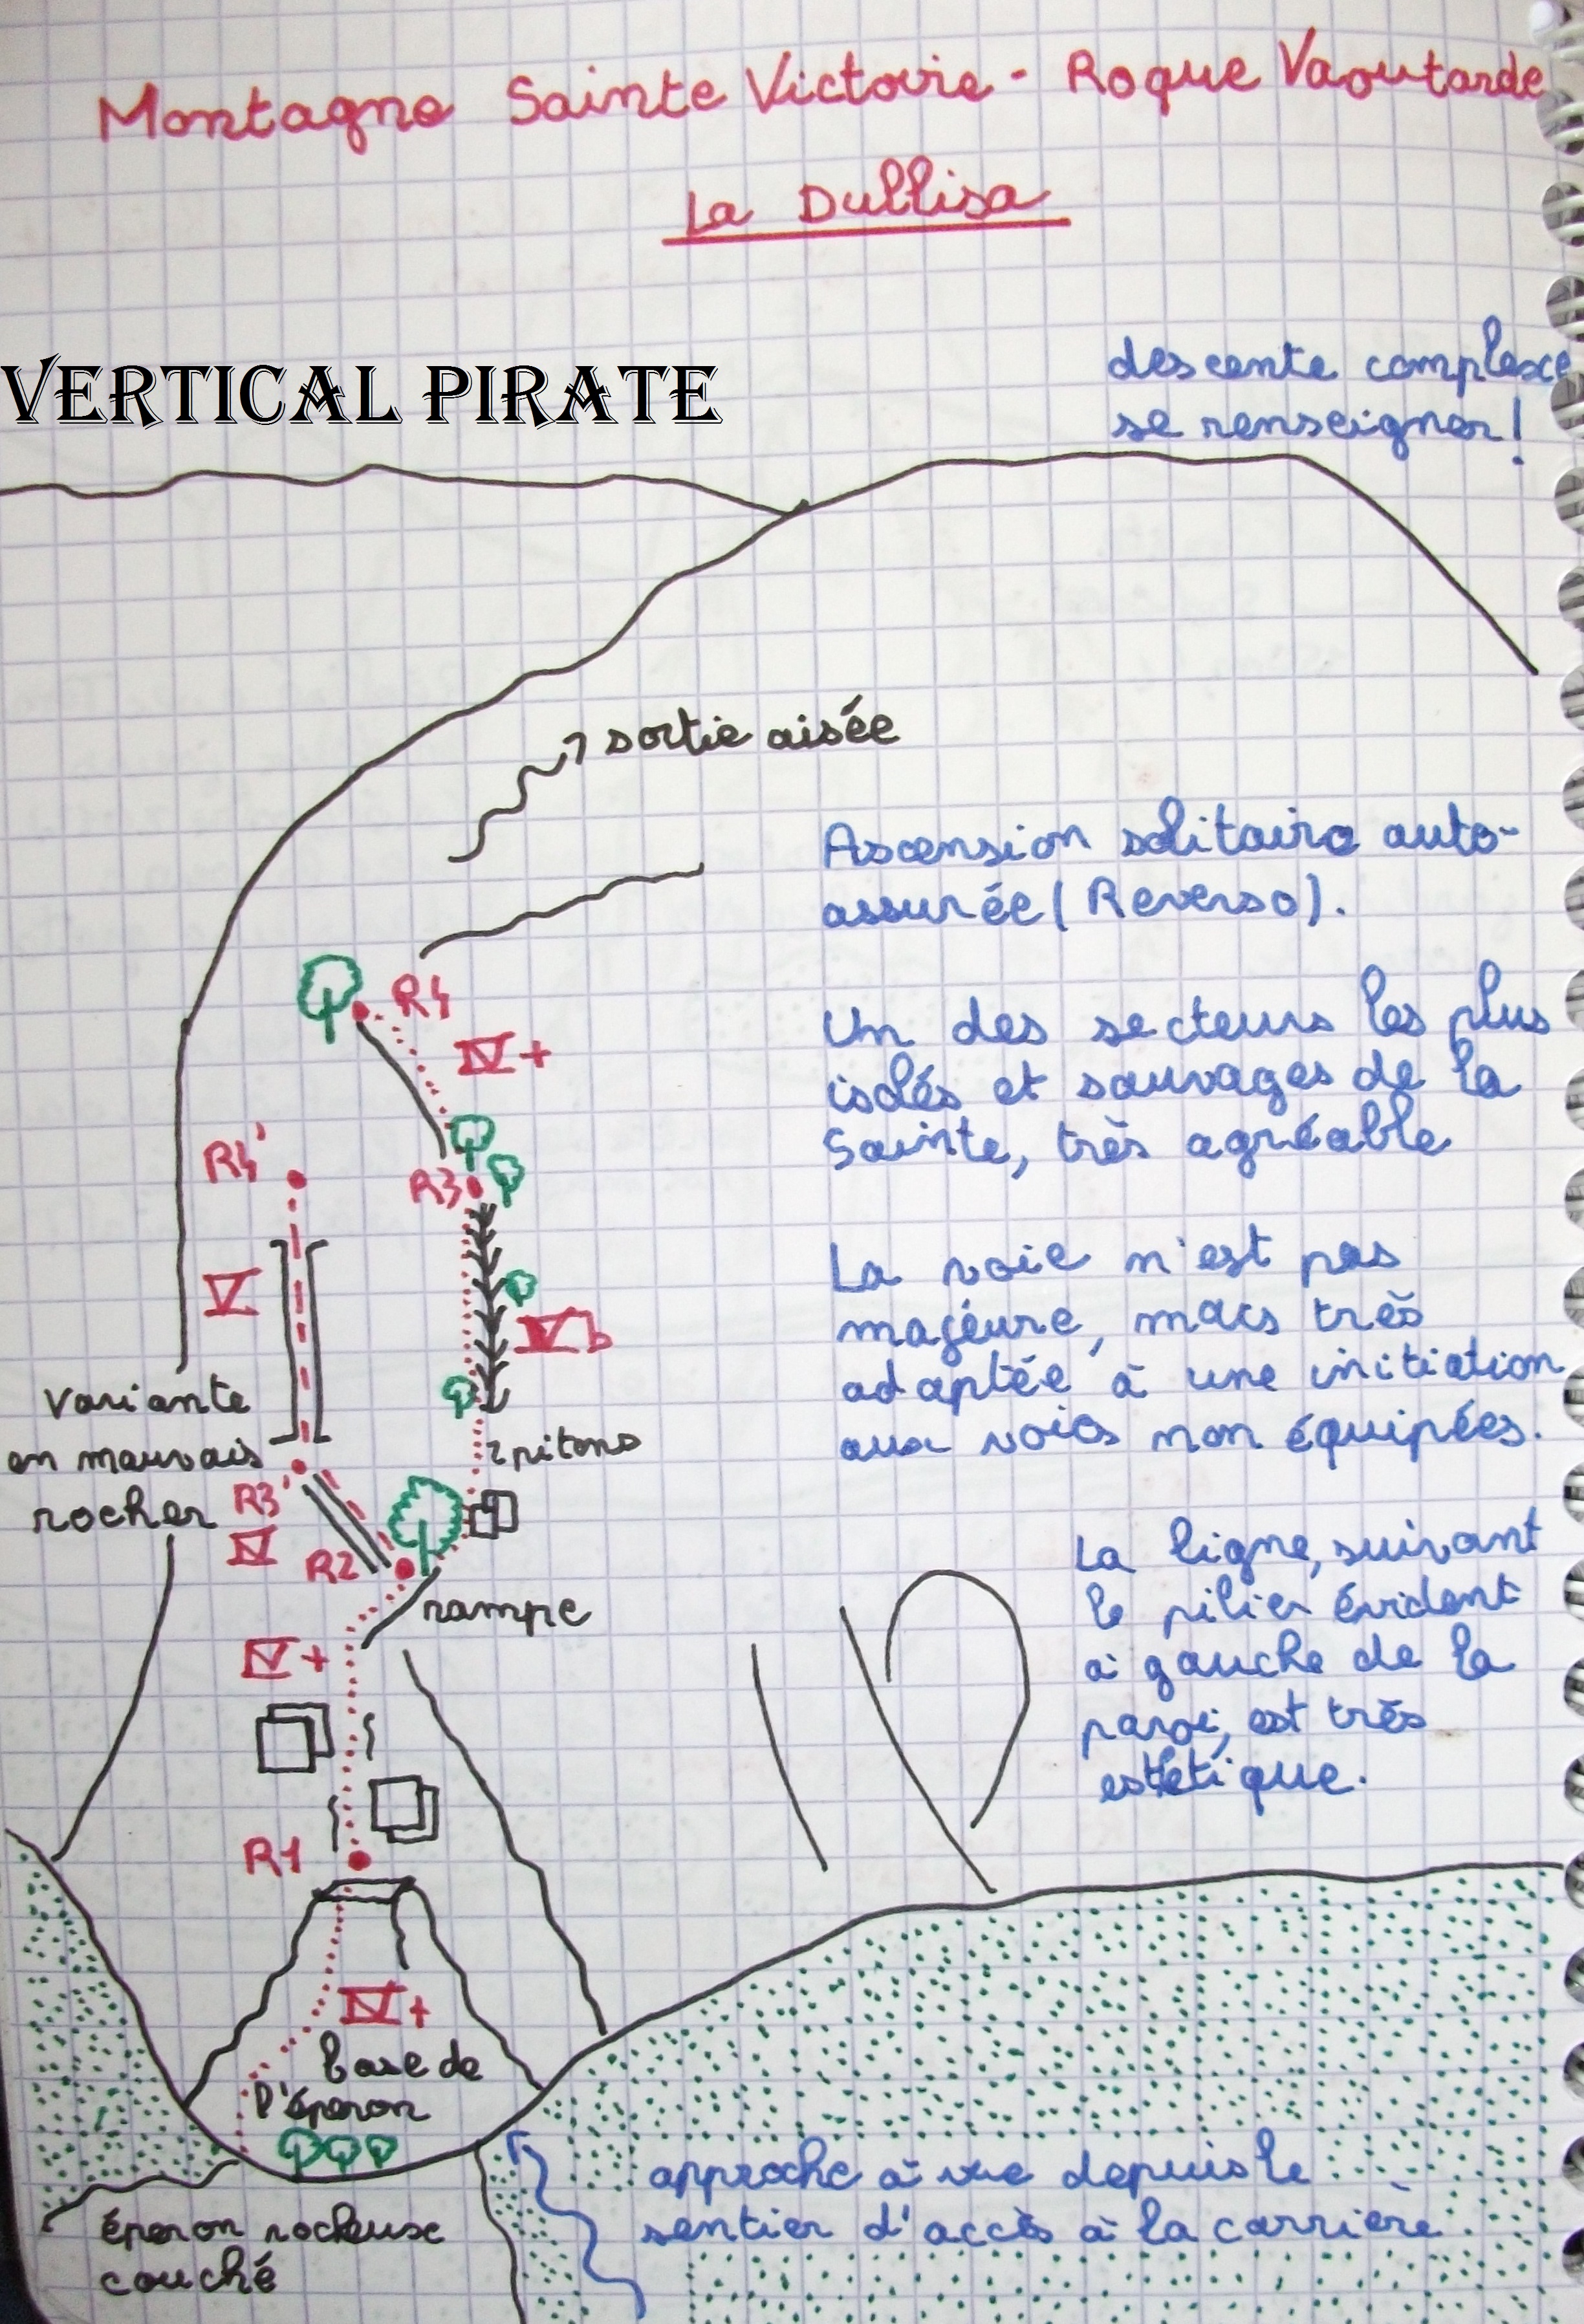 Montagne Sainte Victoire - Roque Vaoutarde
La Dullisa
VERTICAL PIRATE
descente complexe
se renseigner!
sortie aisée
Ascension solitaire auto-
assurée (Reverso).
Un des secteurs les plus
isolés et sauvages de la
Sainte, très agréable
La voie n'est pas
majeure, mais très
adaptée à une initiation
aux voies non équipées.
La ligne, suivant
le pilier évident
à gauche de la
paroi, est très
estétique.
R4
IV+
R4'
R3
V
Vb
variante
en mauvais
rocher
2 pitons
R3'
IV
R2
rampe
IV+
R1
IV+
base de
l'éperon
approche à vue depuis le
sentier d'accès à la carrière.
éperon rocheuse
couché